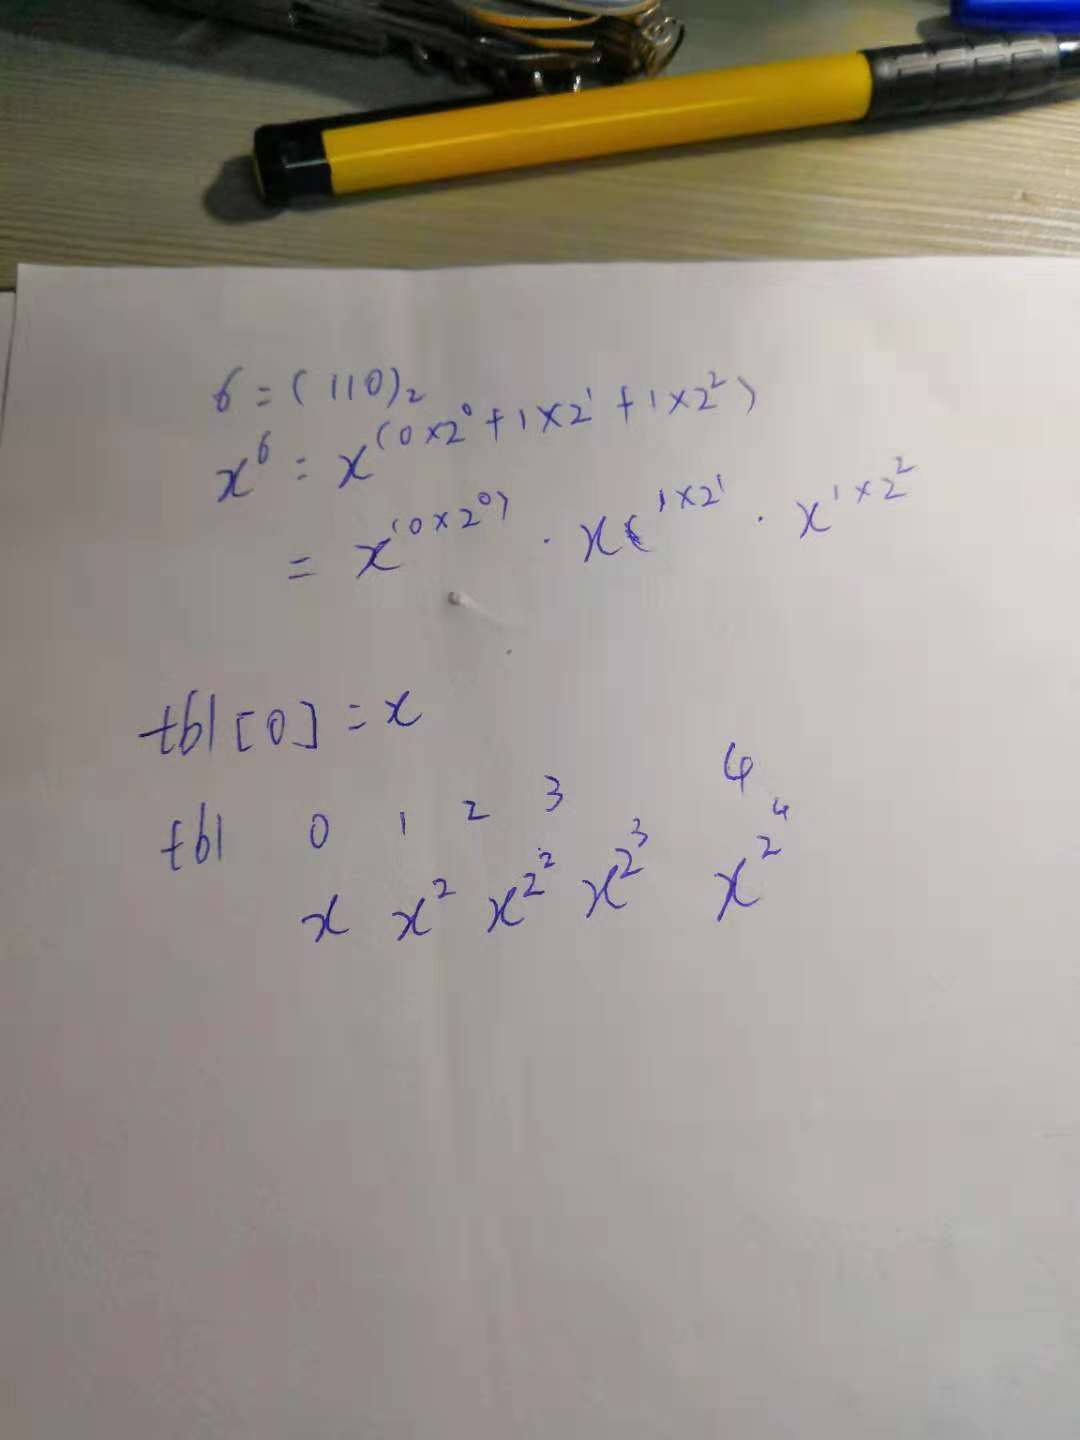 6 = (110)₂
x⁶ = x^(0×2⁰+1×2¹+1×2²)
= x^(0×2⁰) · x(^1×2¹ · x^1×2²
tbl[0] = x
tbl 0 1 2 3 4
x x² x^2² x^2³ x^2⁴